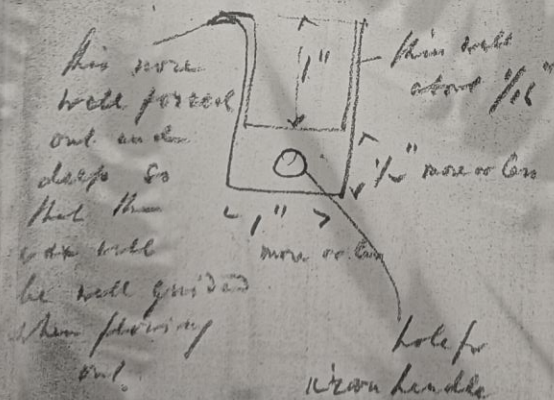 this nose
well forced
out and
deep so
that the
wax will
be well guided
when flowing
out.
1"
thin walls
about 1/16"
1/2" more or less
1"
more or less
hole for
handle